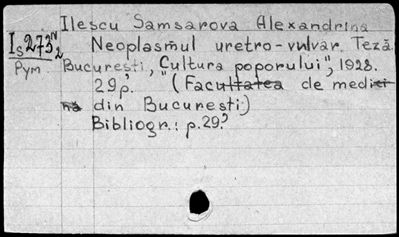 Ilescu Samsarova Alexandrina
Is273N2
Neoplasmul uretro-vulvar. Teză.
Pym.
București, "Cultura poporului", 1928.
29p. (Facultatea de medici
nă din București)
Bibliogr.: p.29.